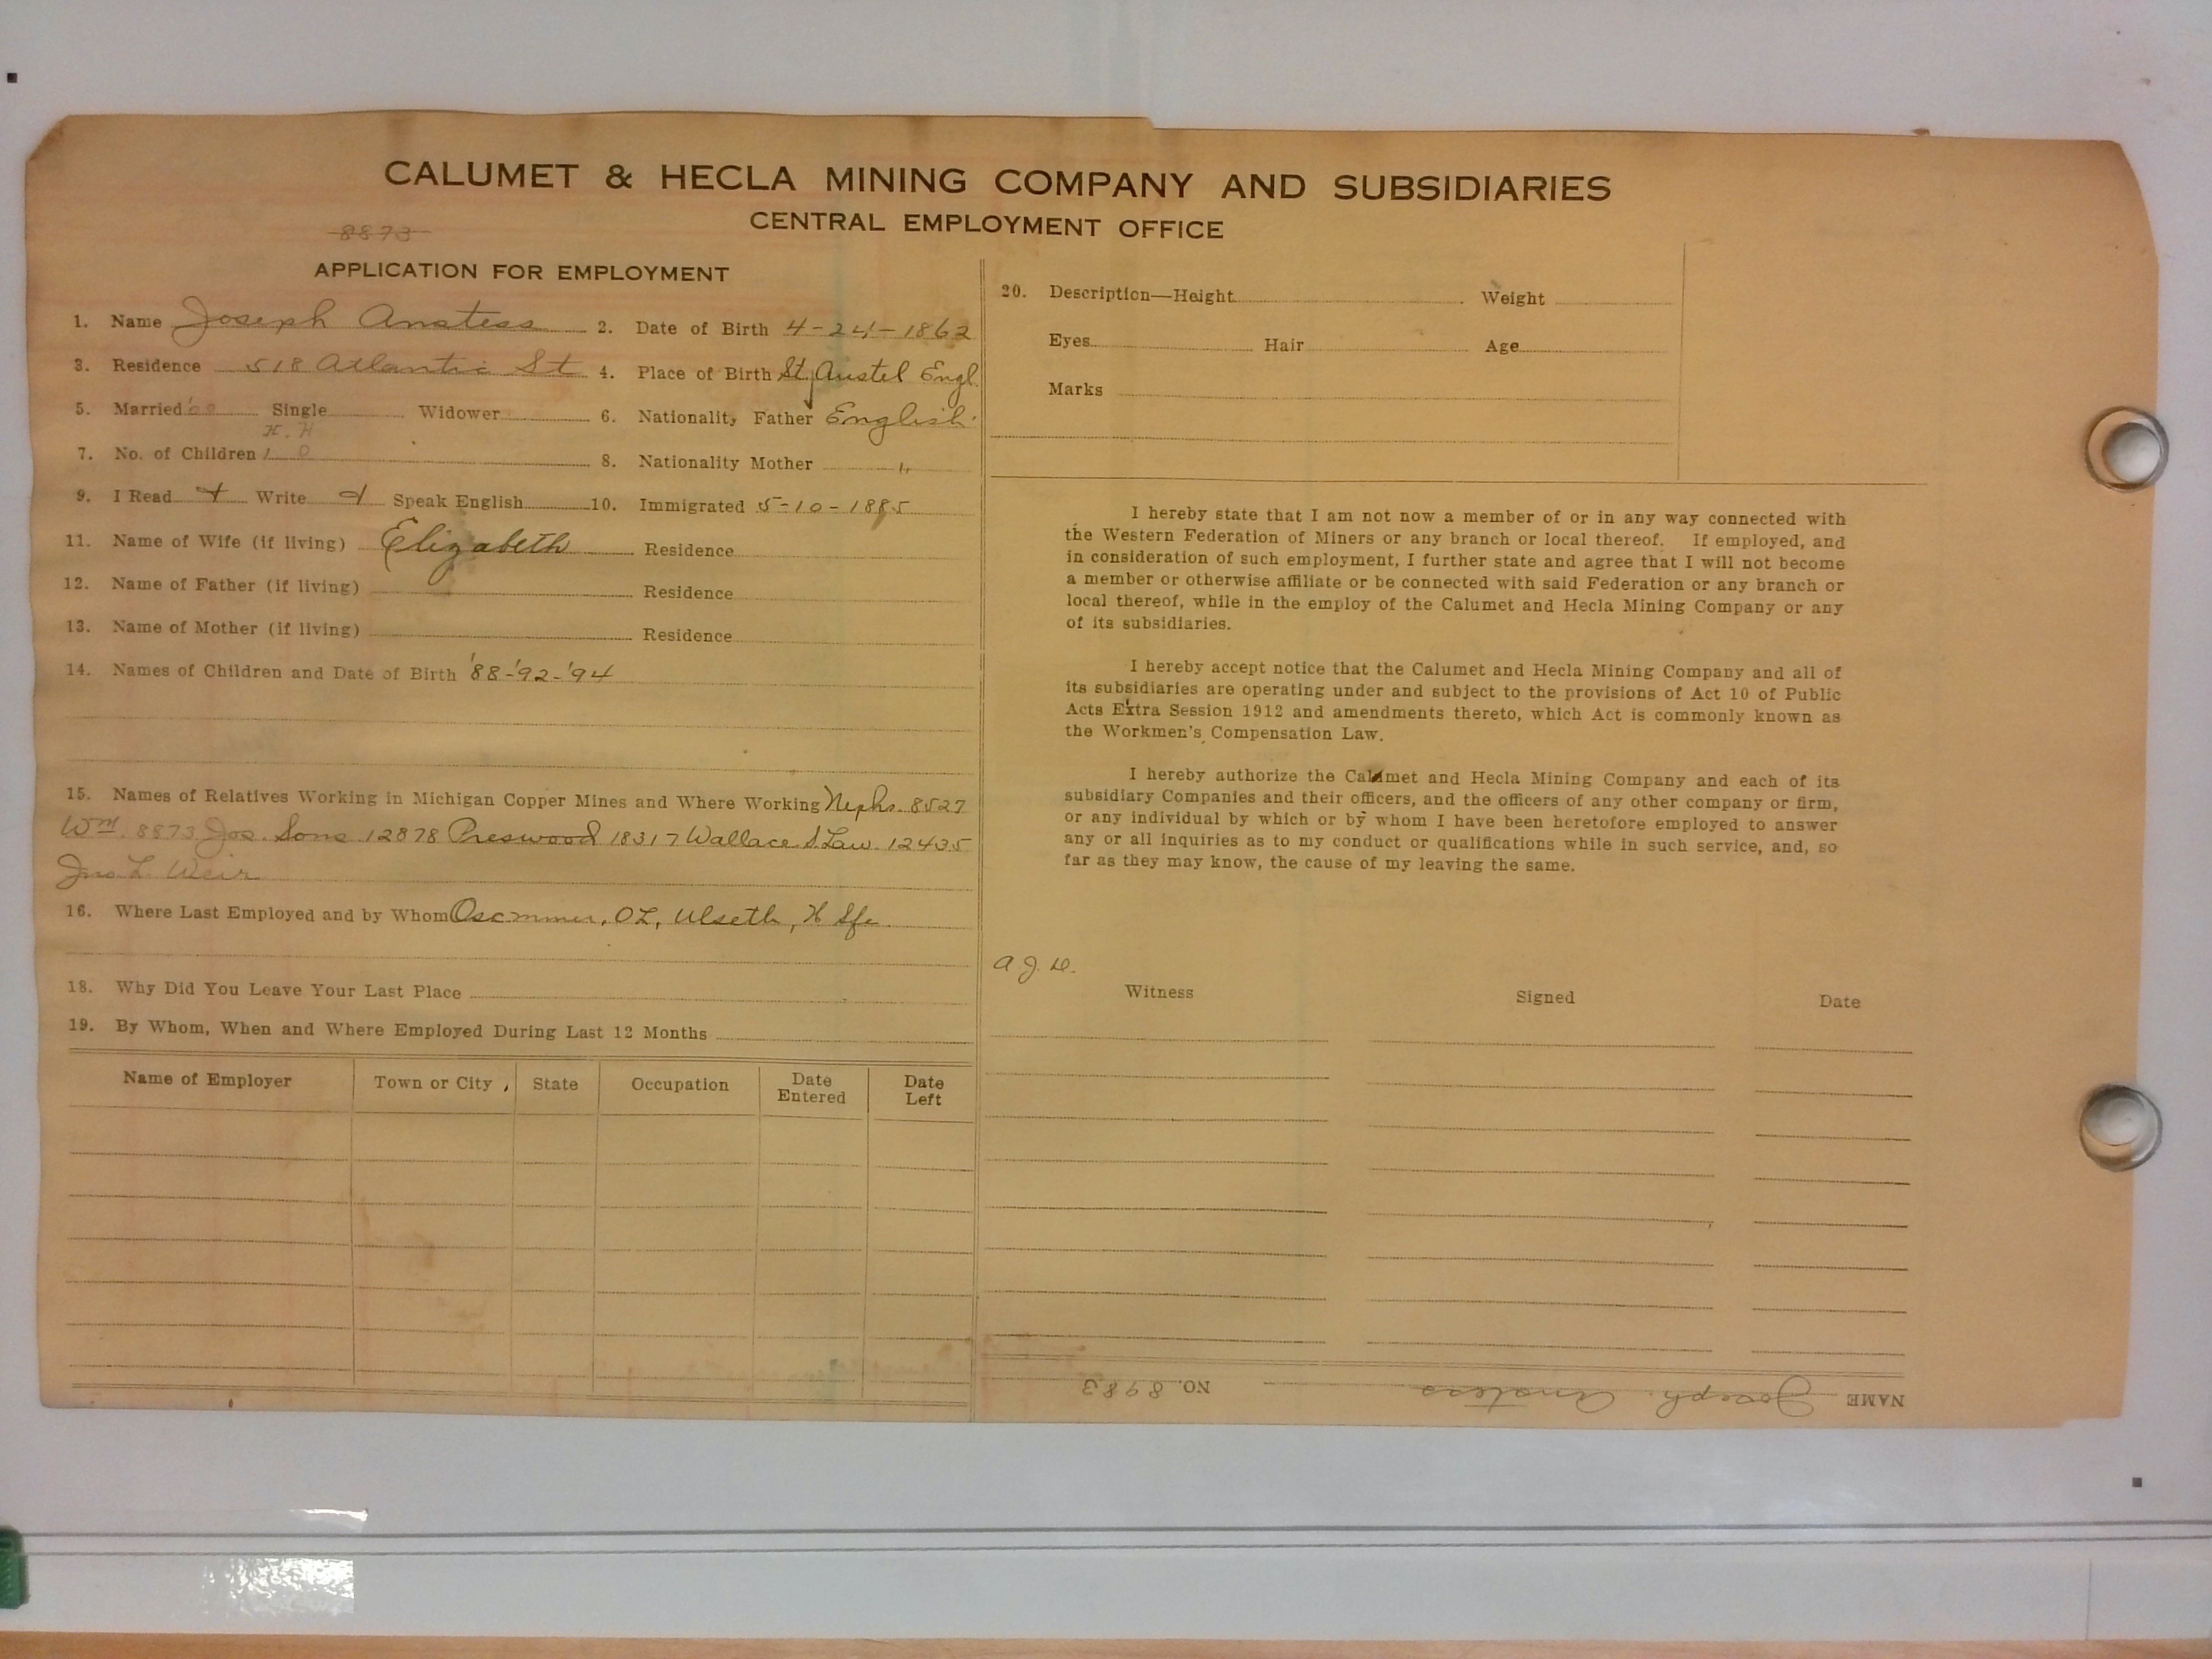 CALUMET & HECLA MINING COMPANY AND SUBSIDIARIES
CENTRAL EMPLOYMENT OFFICE
8873
APPLICATION FOR EMPLOYMENT
1. Name Joseph Anstess 2. Date of Birth 4-24-1862
3. Residence 518 Atlantic St 4. Place of Birth St. Austel Engl.
5. Married Single Widower 6. Nationality Father English
H. H
7. No. of Children 1 0 8. Nationality Mother "
9. I Read Write Speak English 10. Immigrated 5-10-1885
11. Name of Wife (if living) Elizabeth Residence
12. Name of Father (if living) Residence
13. Name of Mother (if living) Residence
14. Names of Children and Date of Birth '88-'92-'94
15. Names of Relatives Working in Michigan Copper Mines and Where Working Nephs. 8527
Wm. 8873 Jos. Sons 12878 Preswood 18317 Wallace S. Law. 12435
Jno. L. Weir
16. Where Last Employed and by Whom OL, Ulseth,
18. Why Did You Leave Your Last Place
19. By Whom, When and Where Employed During Last 12 Months
Name of Employer Town or City State Occupation Date Entered Date Left
20. Description—Height Weight
Eyes Hair Age
Marks
I hereby state that I am not now a member of or in any way connected with
the Western Federation of Miners or any branch or local thereof. If employed, and
in consideration of such employment, I further state and agree that I will not become
a member or otherwise affiliate or be connected with said Federation or any branch or
local thereof, while in the employ of the Calumet and Hecla Mining Company or any
of its subsidiaries.
I hereby accept notice that the Calumet and Hecla Mining Company and all of
its subsidiaries are operating under and subject to the provisions of Act 10 of Public
Acts Extra Session 1912 and amendments thereto, which Act is commonly known as
the Workmen's Compensation Law.
I hereby authorize the Calumet and Hecla Mining Company and each of its
subsidiary Companies and their officers, and the officers of any other company or firm,
or any individual by which or by whom I have been heretofore employed to answer
any or all inquiries as to my conduct or qualifications while in such service, and, so
far as they may know, the cause of my leaving the same.
Witness Signed Date
NAME Joseph Anstess NO. 8983